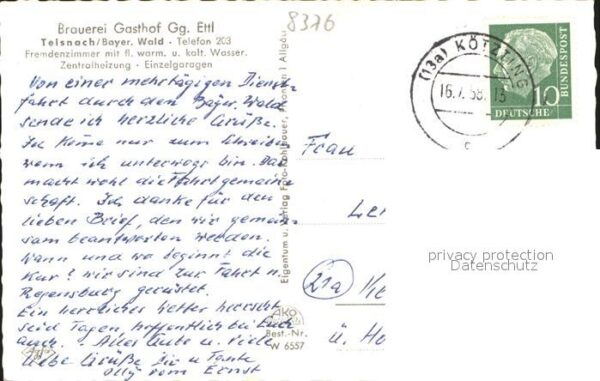 8376
Brauerei Gasthof Gg. Ettl
Teisnach/Bayer. Wald - Telefon 203
Fremdenzimmer mit fl. warm. u. kalt. Wasser.
Zentralheizung - Einzelgaragen
Von einer mehrtägigen Dienst-
fahrt durch den Bayer. Wald
sende ich herzliche Grüße.
Ich komme nur zum Schreiben
wenn ich unterwegs bin. Das
macht wohl die Fahrtgemein-
schaft. Ich danke für den
lieben Brief, den wir gemein-
sam beantworten werden.
Wann und wo beginnt die
Kur? Wir sind zur Fahrt n.
Regensburg gerüstet.
Ein herrliches Wetter herrscht
seid Tagen, hoffentlich bei Euch
auch. Alles Gute u. viele
liebe Grüße Dir u. Tante
Olly vom Ernst
Eigentum u. Verlag Foto-
Allgäu
AKO
Best.-Nr.
W 6557
(13a) KÖTZTING
16.7.58.
c
10
DEUTSCHE
BUNDESPOST
Frau
21a
ü. Ho
privacy protection
Datenschutz